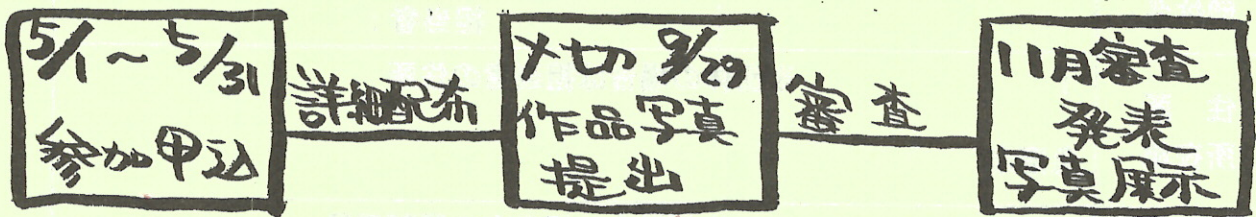 5/1～5/31
参加申込
詳細配布
〆切 9/29
作品写真
提出
審査
11月審査
発表
写真展示